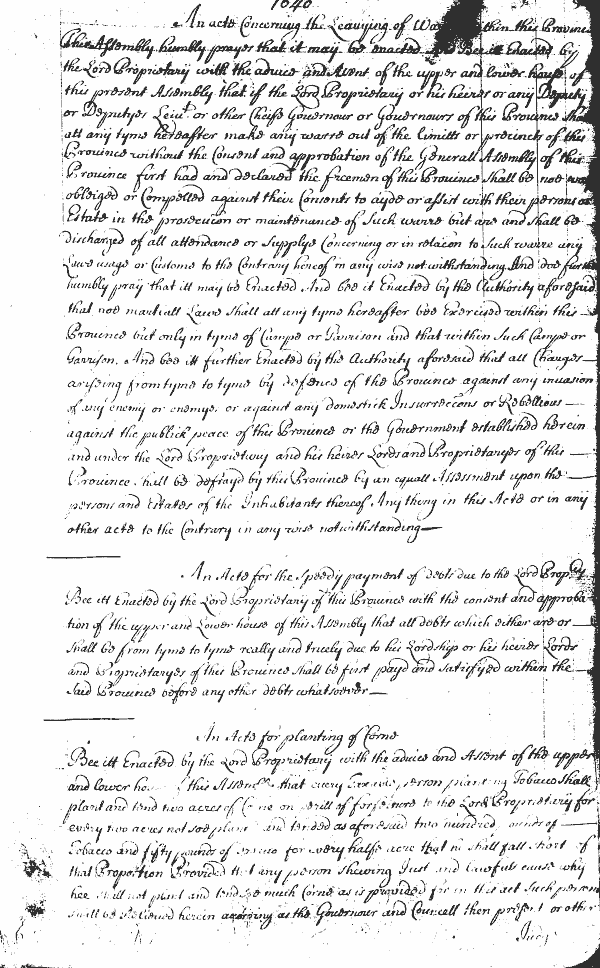 An acte Concerning the Leavying of within this Province
This Assembly humbly prayes that it may be enacted And Bee it Enacted by
the Lord Proprietary with the advice and Assent of the upper and lower house of
this present Assembly that if the Lord Proprietary or his heires or any Deputy
or Deputyes Leiut or other Cheife Governour or Governours of this Province Shall
att any tyme hereafter make any warre out of the Limitts or precincts of this
Province without the Consent and approbation of the Generall Assembly of this
Province first had and declared the freemen of this Province Shall be not
obleiged or Compelled against their Consents to ayde or assist with their persons or
Estate in the prosecucion or maintenance of Such warre but are and shall be
discharged of all attendance or Supplye Concerning or in relacon to Such warre any
Lawe usage or Custome to the Contrary hereof in any wise notwithstanding And doe further
humbly pray that itt may be Enacted And bee it Enacted by the Authority aforesaid
that noe martiall Lawe Shall att any tyme hereafter bee Exercised within this
Province but only in tyme of Campe or Garrison and that within Such Campe or
Garrison. And bee itt further Enacted by the Authority aforesaid that all Charges
arising from tyme to tyme by defence of the Province against any invasion
of any enemy or enemys, or against any domestick Insurreccons or Rebellions
against the publick peace of this Province or the Government established herein
and under the Lord Proprietary and his heires Lords and Proprietaryes of this
Province shall be defrayd by this Province by an equall Assessment upon the
persons and Estates of the Inhabitants thereof Any thing in this Acte or in any
other acte to the Contrary in any wise notwithstanding
An Acte for the Speedy payment of debts due to the Lord Propry
Bee itt Enacted by the Lord Proprietary of this Province with the consent and approba
tion of the upper and Lower house of this Assembly that all debts which either are or
shall be from tyme to tyme really and truely due to his Lordship or his heires Lords
and Proprietaryes of this Province shall be first payd and satisfyed within the
Said Province before any other debts whatsoever
An Acte for planting of Corne
Bee itt Enacted by the Lord Proprietary with the advice and Assent of the upper
and lower this that every person planting Tobacco Shall
plant and tend two acres of on perill of forfeiture to the Lord Proprietary for
every two acres not soe and tended as aforesaid two hundred of
Tobacco and fifty pounds of for every halfe acre that is shall fall short of
that Proportion Provided that any person shewing Just and Lawfull cause why
hee shall not plant and tend soe much Corne as is provided for in this act Such person
shall be Releived herein as the Governour and Councell then present or other